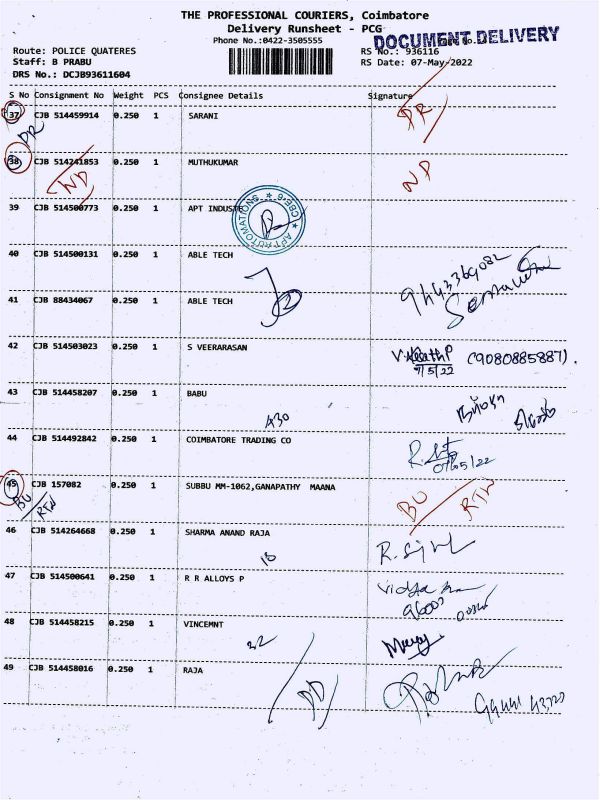 THE PROFESSIONAL COURIERS, Coimbatore
Delivery Runsheet - PCG
DOCUMENT DELIVERY
Phone No.:0422-3505555
Route: POLICE QUATERES
RS No.: 936116
Staff: B PRABU
RS Date: 07-May-2022
DRS No.: DCJB93611604
S No Consignment No Weight PCS Consignee Details Signature
37 CJB 514459914 0.250 1 SARANI
DR
38 CJB 514241853 0.250 1 MUTHUKUMAR
ND
ND
39 CJB 514500773 0.250 1 APT INDUST
APT AUTOMATIONS ★ CBE-6 ★
40 CJB 514500131 0.250 1 ABLE TECH
41 CJB 88434067 0.250 1 ABLE TECH
42 CJB 514503023 0.250 1 S VEERARASAN
(9080885887).
7/5/22
43 CJB 514458207 0.250 1 BABU
430
44 CJB 514492842 0.250 1 COIMBATORE TRADING CO
07/05/22
45 CJB 157082 0.250 1 SUBBU MM-1062,GANAPATHY MAANA
BU RTN
BU RTN
46 CJB 514264668 0.250 1 SHARMA ANAND RAJA
47 CJB 514500641 0.250 1 R R ALLOYS P
48 CJB 514458215 0.250 1 VINCEMNT
32
49 CJB 514458016 0.250 1 RAJA